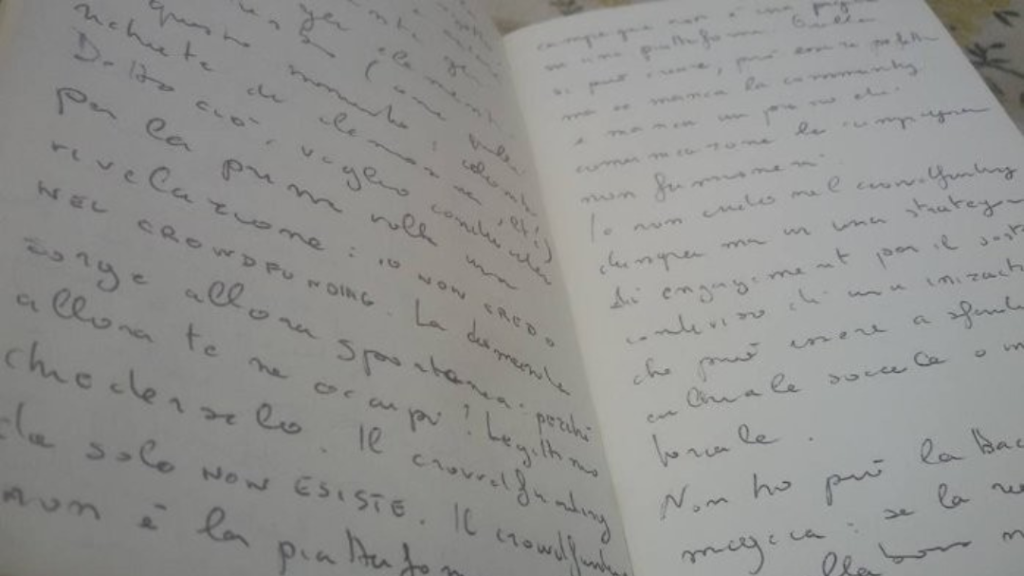 questo momento i
richieste di
Detto ciò, voglio condividere
per la prima volta una
rivelazione: IO NON CREDO
NEL CROWDFUNDING. La domanda
sorge allora spontanea: perché
allora te ne occupi? Legittimo
chiederselo. Il crowdfunding
da solo NON ESISTE. Il crowdfun
non è la piattaform
campagna non è una pagina
su una piattaforma. Quella
si può creare, può essere perfetta
ma se manca la community
e manca un piano di
comunicazione la campagna
non funzionerà.
Io non credo nel crowdfunding
dunque ma in una strategia
di engagement per il soste
condiviso di una iniziati
che può essere a sfondo
culturale sociale o im
toriale.
Non ho però la bac
magica: se la